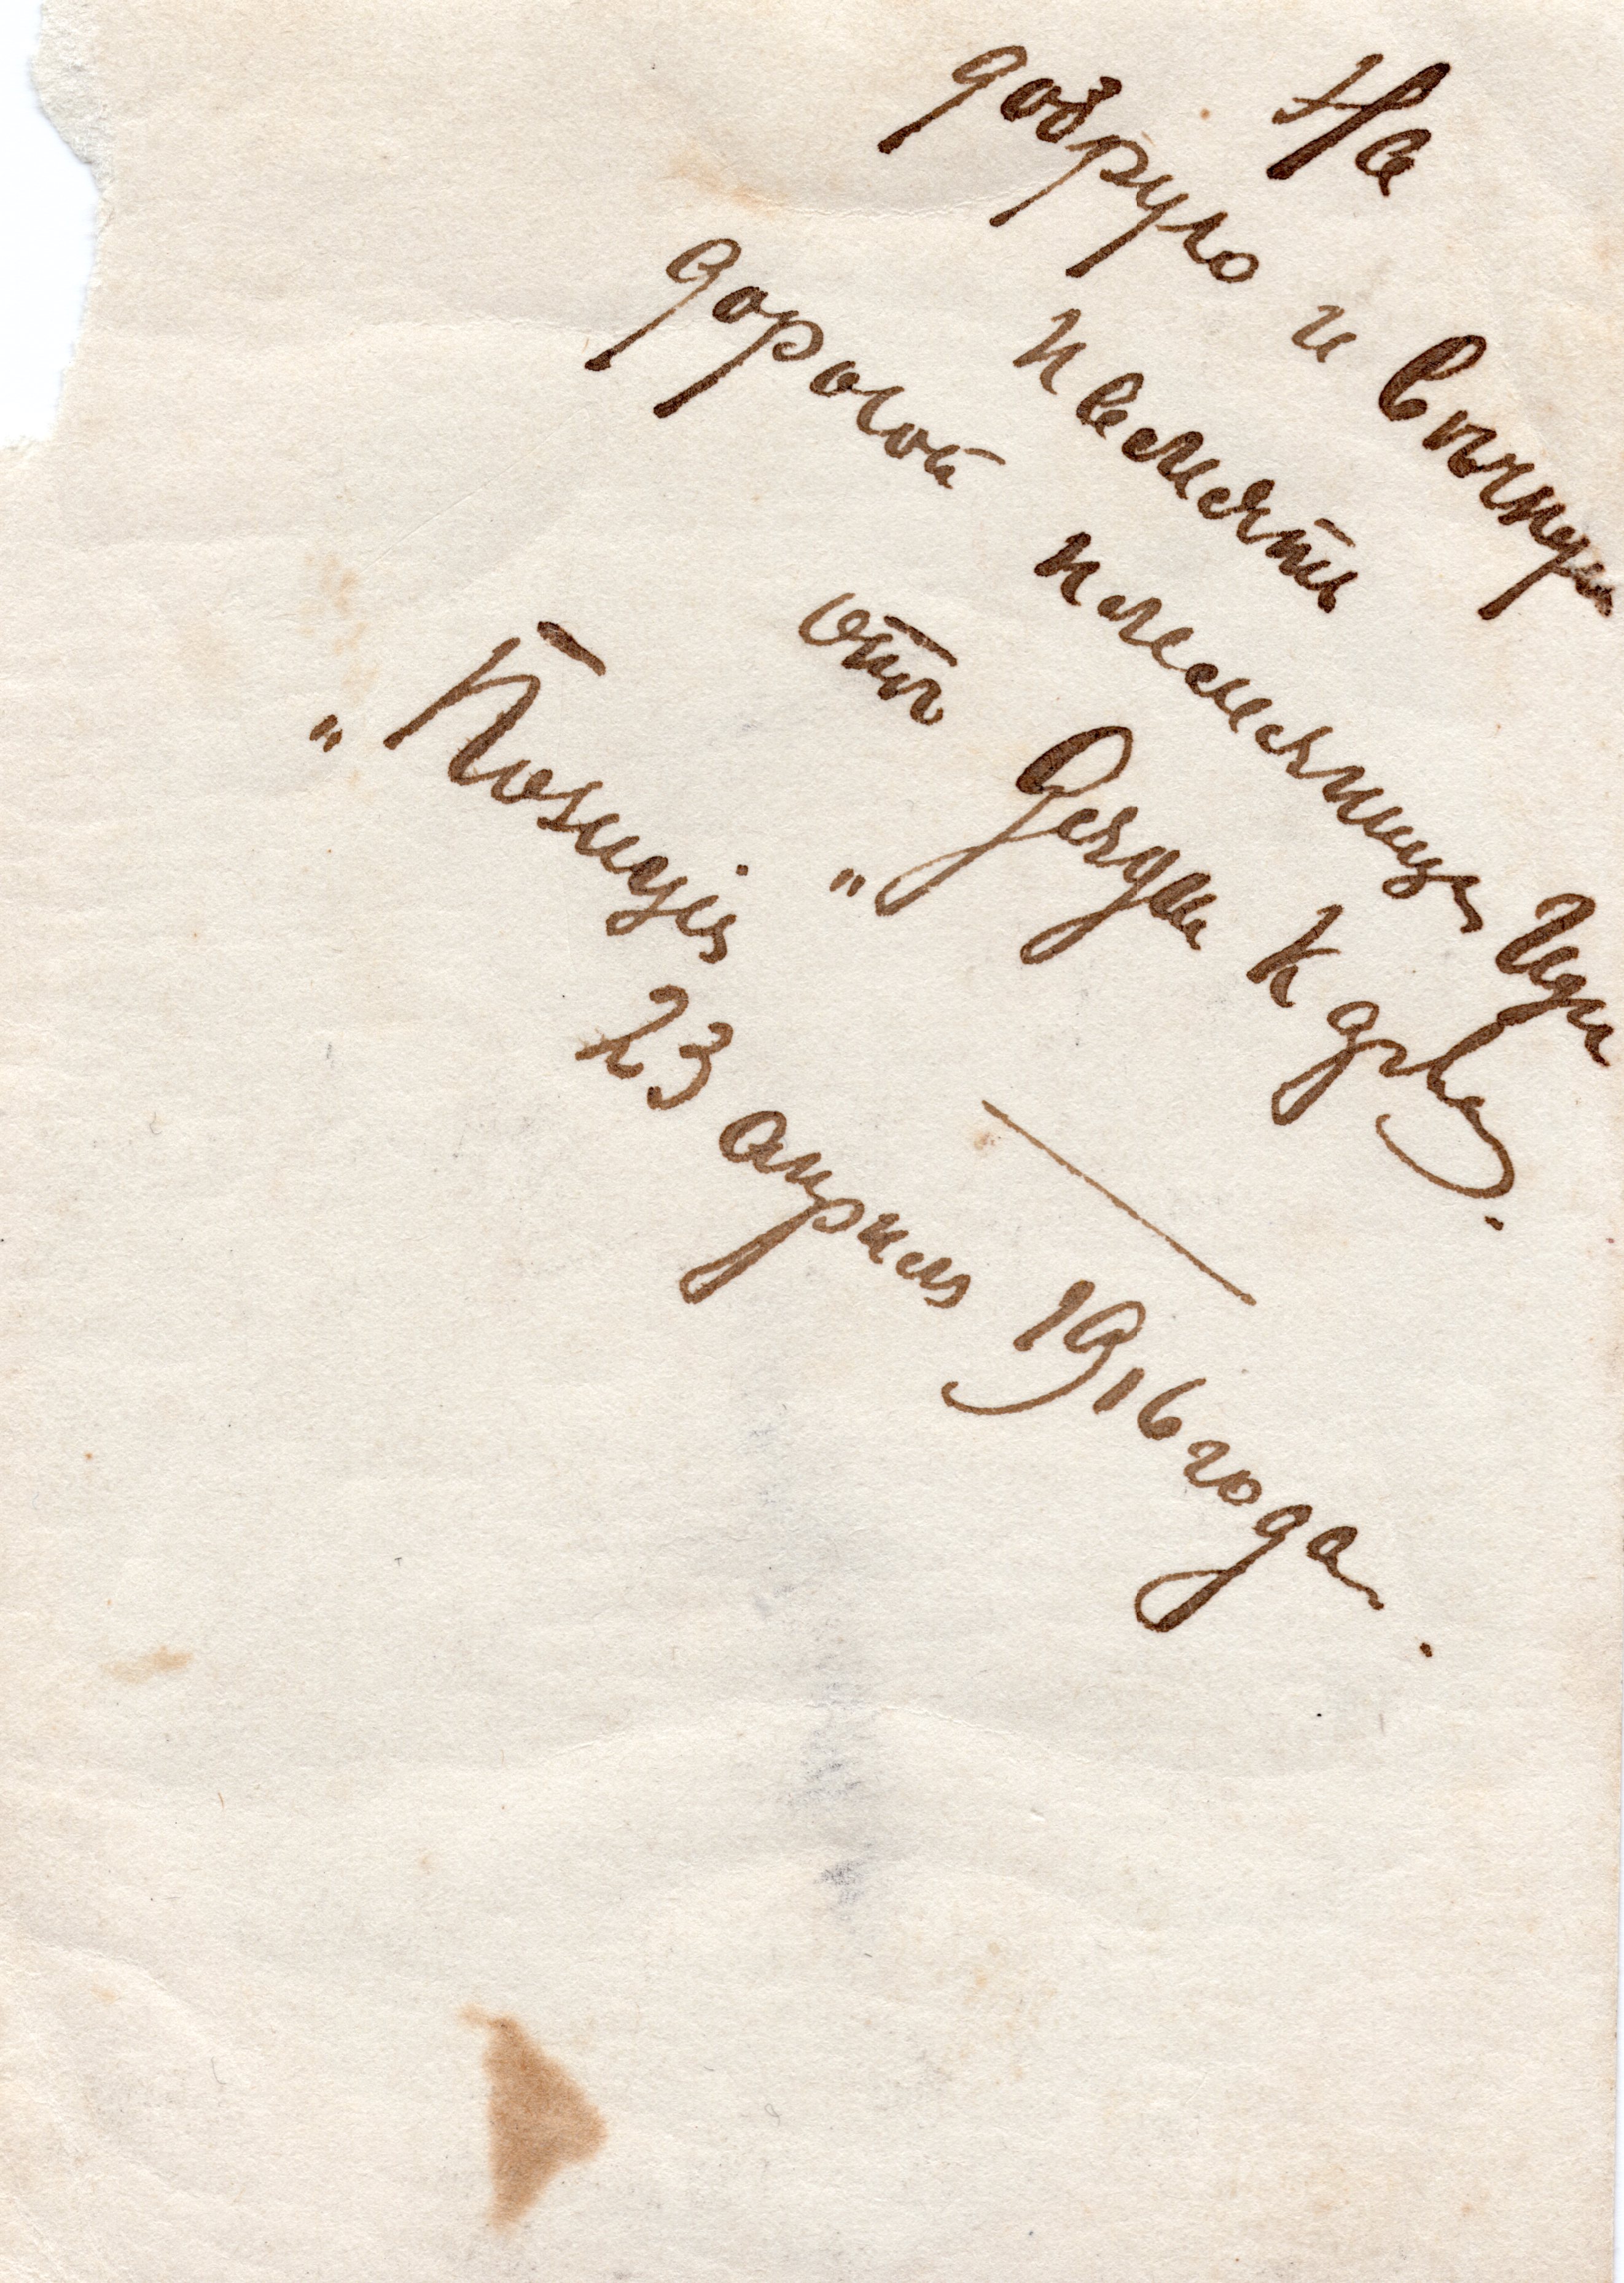 На
добрую и вѣчную
память
дорогой племянницѣ Иры
отъ Дяди К
„Позиція„
23 апрѣля 1916 года.